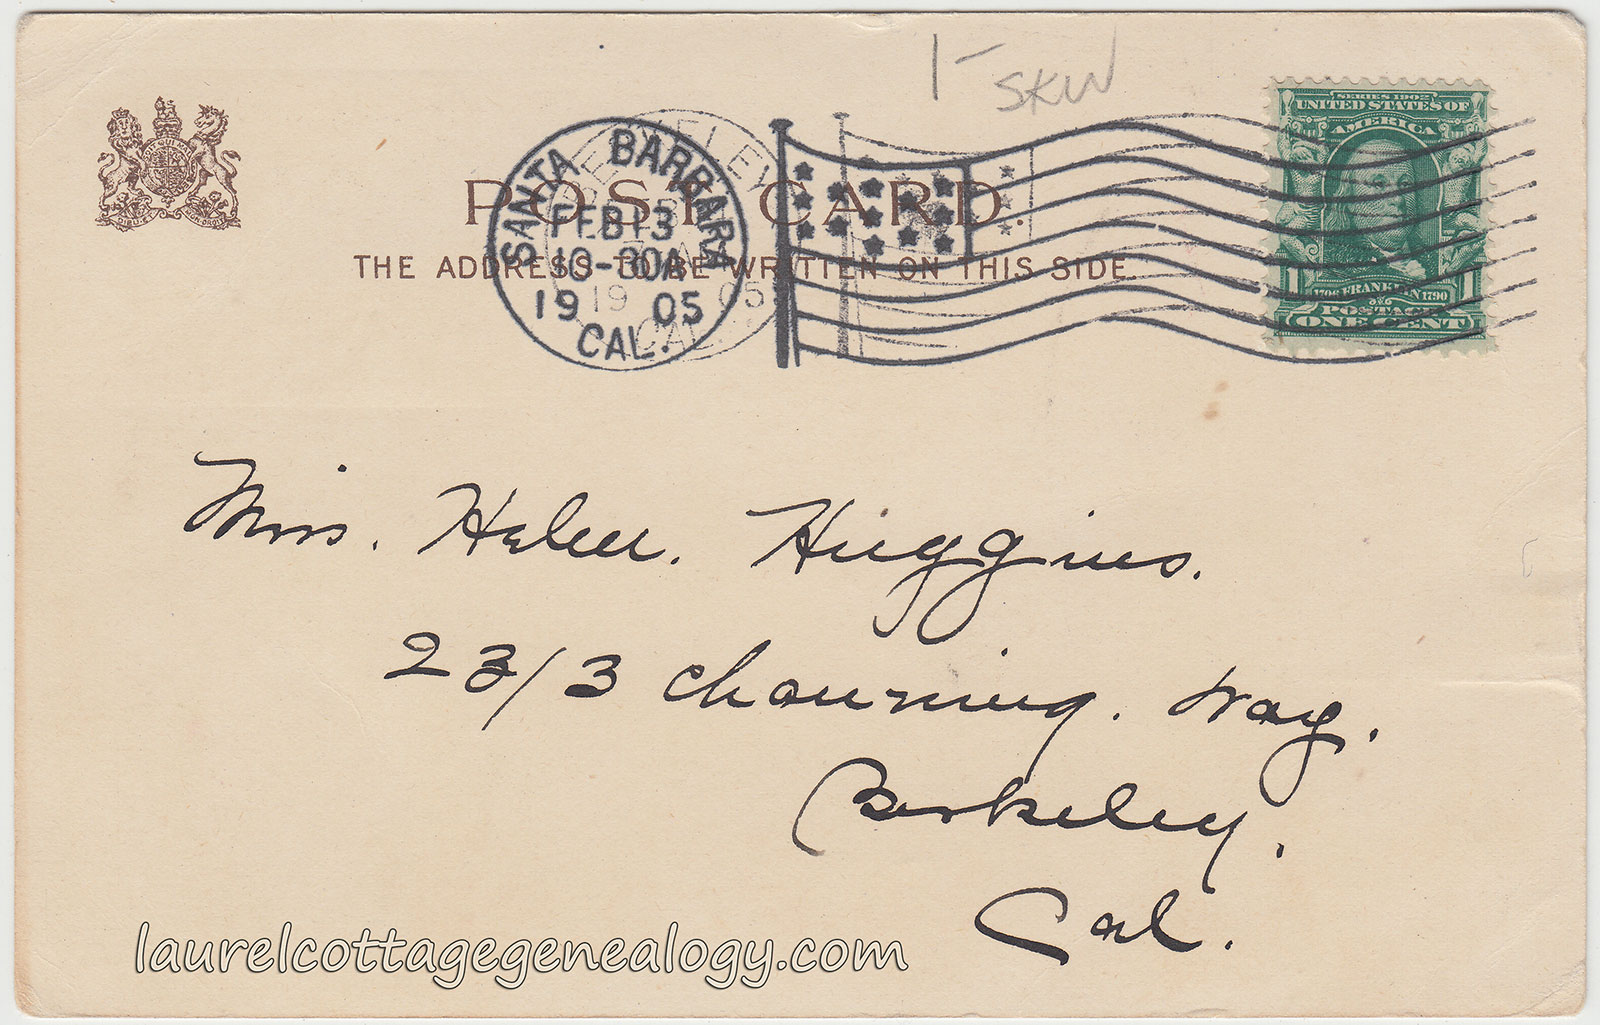 1- SKW
SERIES 1902
UNITED STATES OF
AMERICA
1706 FRANKLIN 1790
1 1
POSTAGE
ONE CENT
SANTA BARBARA
FEB 13
10-30A
19 05
CAL.
BERKELEY
19 05
CAL.
POST CARD.
THE ADDRESS TO BE WRITTEN ON THIS SIDE.
Miss. Helen. Higgins.
2313 Channing. Way.
Berkeley.
Cal.
laurelcottagegenealogy.com